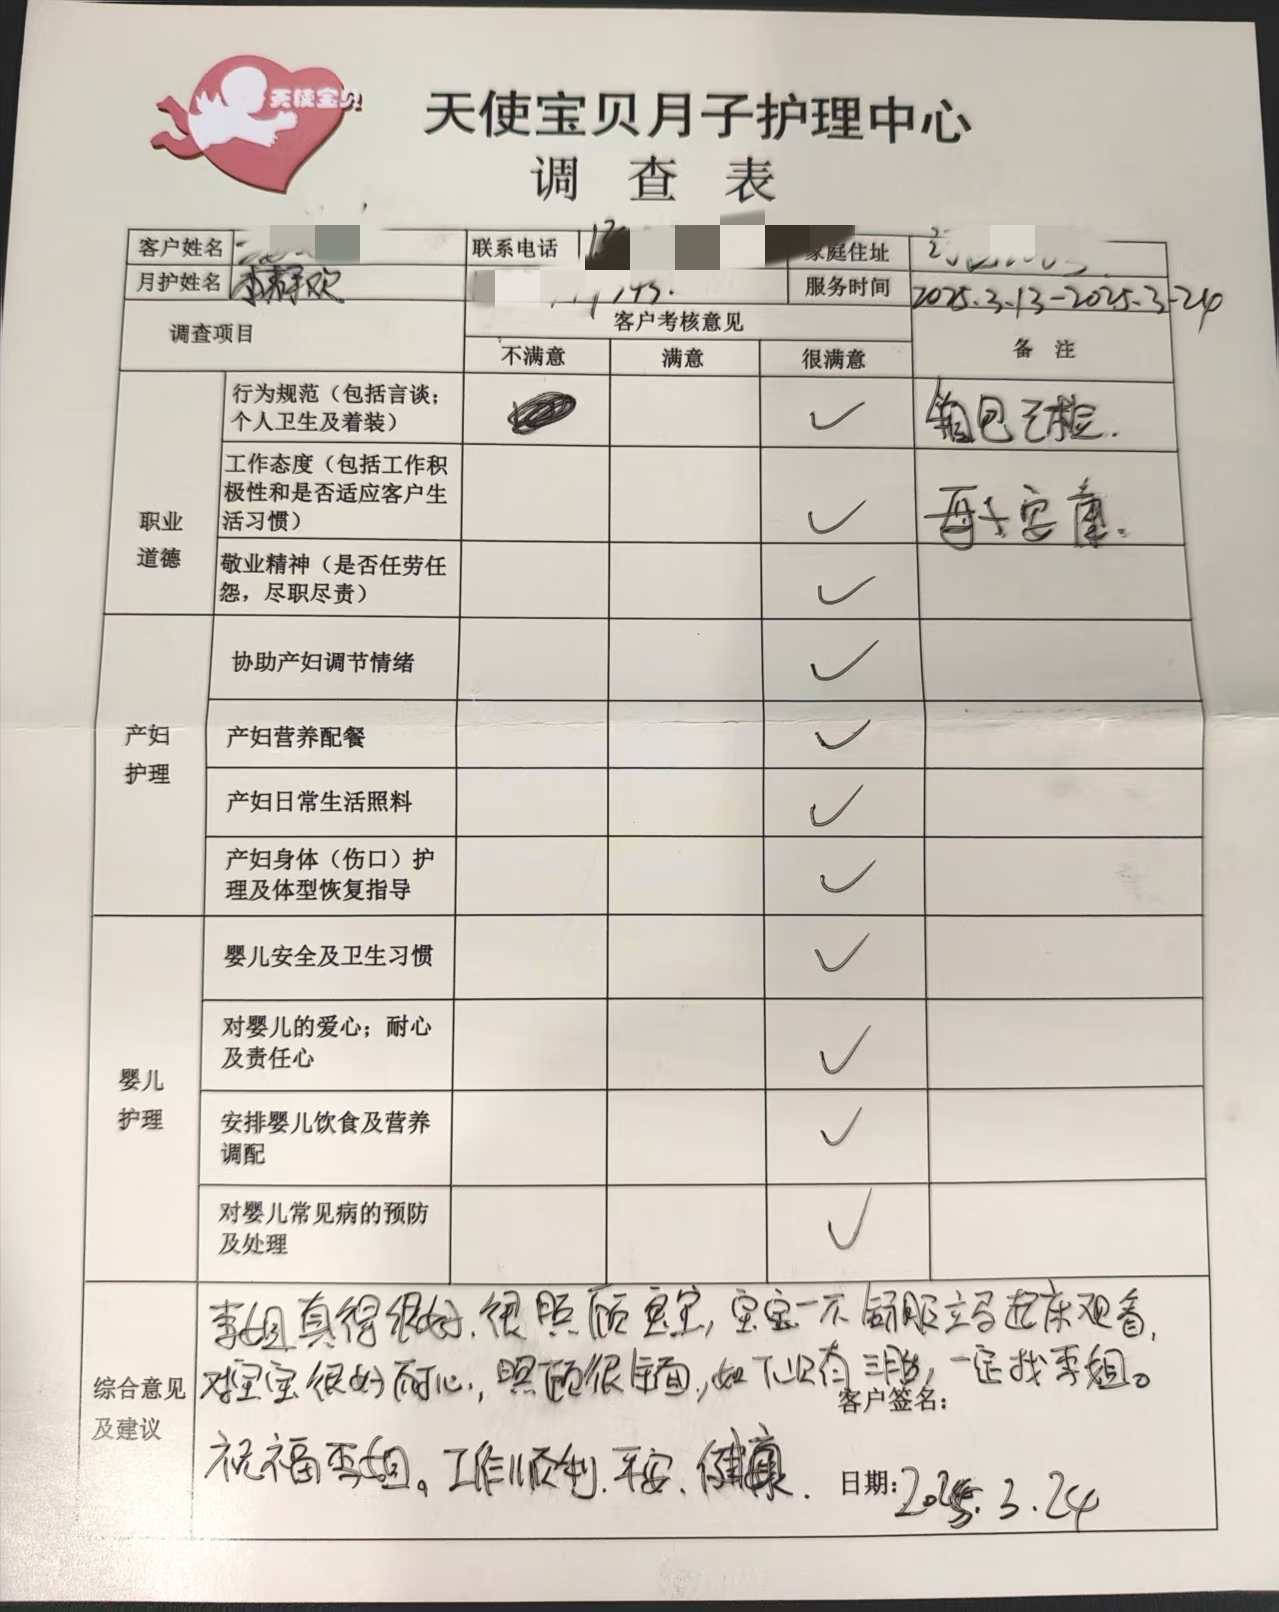 天使宝贝
天使宝贝月子护理中心
调 查 表
客户姓名 联系电话 家庭住址
月护姓名 李静欢 服务时间 2025.3.13-2025.3-24
调查项目 客户考核意见 备 注
不满意 满意 很满意
职业
道德
行为规范（包括言谈；
个人卫生及着装） ✓ 箱包已检.
工作态度（包括工作积
极性和是否适应客户生
活习惯） ✓ 母子安康.
敬业精神（是否任劳任
怨，尽职尽责） ✓
产妇
护理
协助产妇调节情绪 ✓
产妇营养配餐 ✓
产妇日常生活照料 ✓
产妇身体（伤口）护
理及体型恢复指导 ✓
婴儿
护理
婴儿安全及卫生习惯 ✓
对婴儿的爱心；耐心
及责任心 ✓
安排婴儿饮食及营养
调配 ✓
对婴儿常见病的预防
及处理 ✓
综合意见
及建议
李姐真得很好.很照顾宝宝,宝宝一不舒服立马起床观看,
对宝宝很好耐心,照顾很全面,如下次有三胎,一定找李姐。
客户签名：
祝福李姐。工作顺利.平安.健康.
日期：2025.3.24